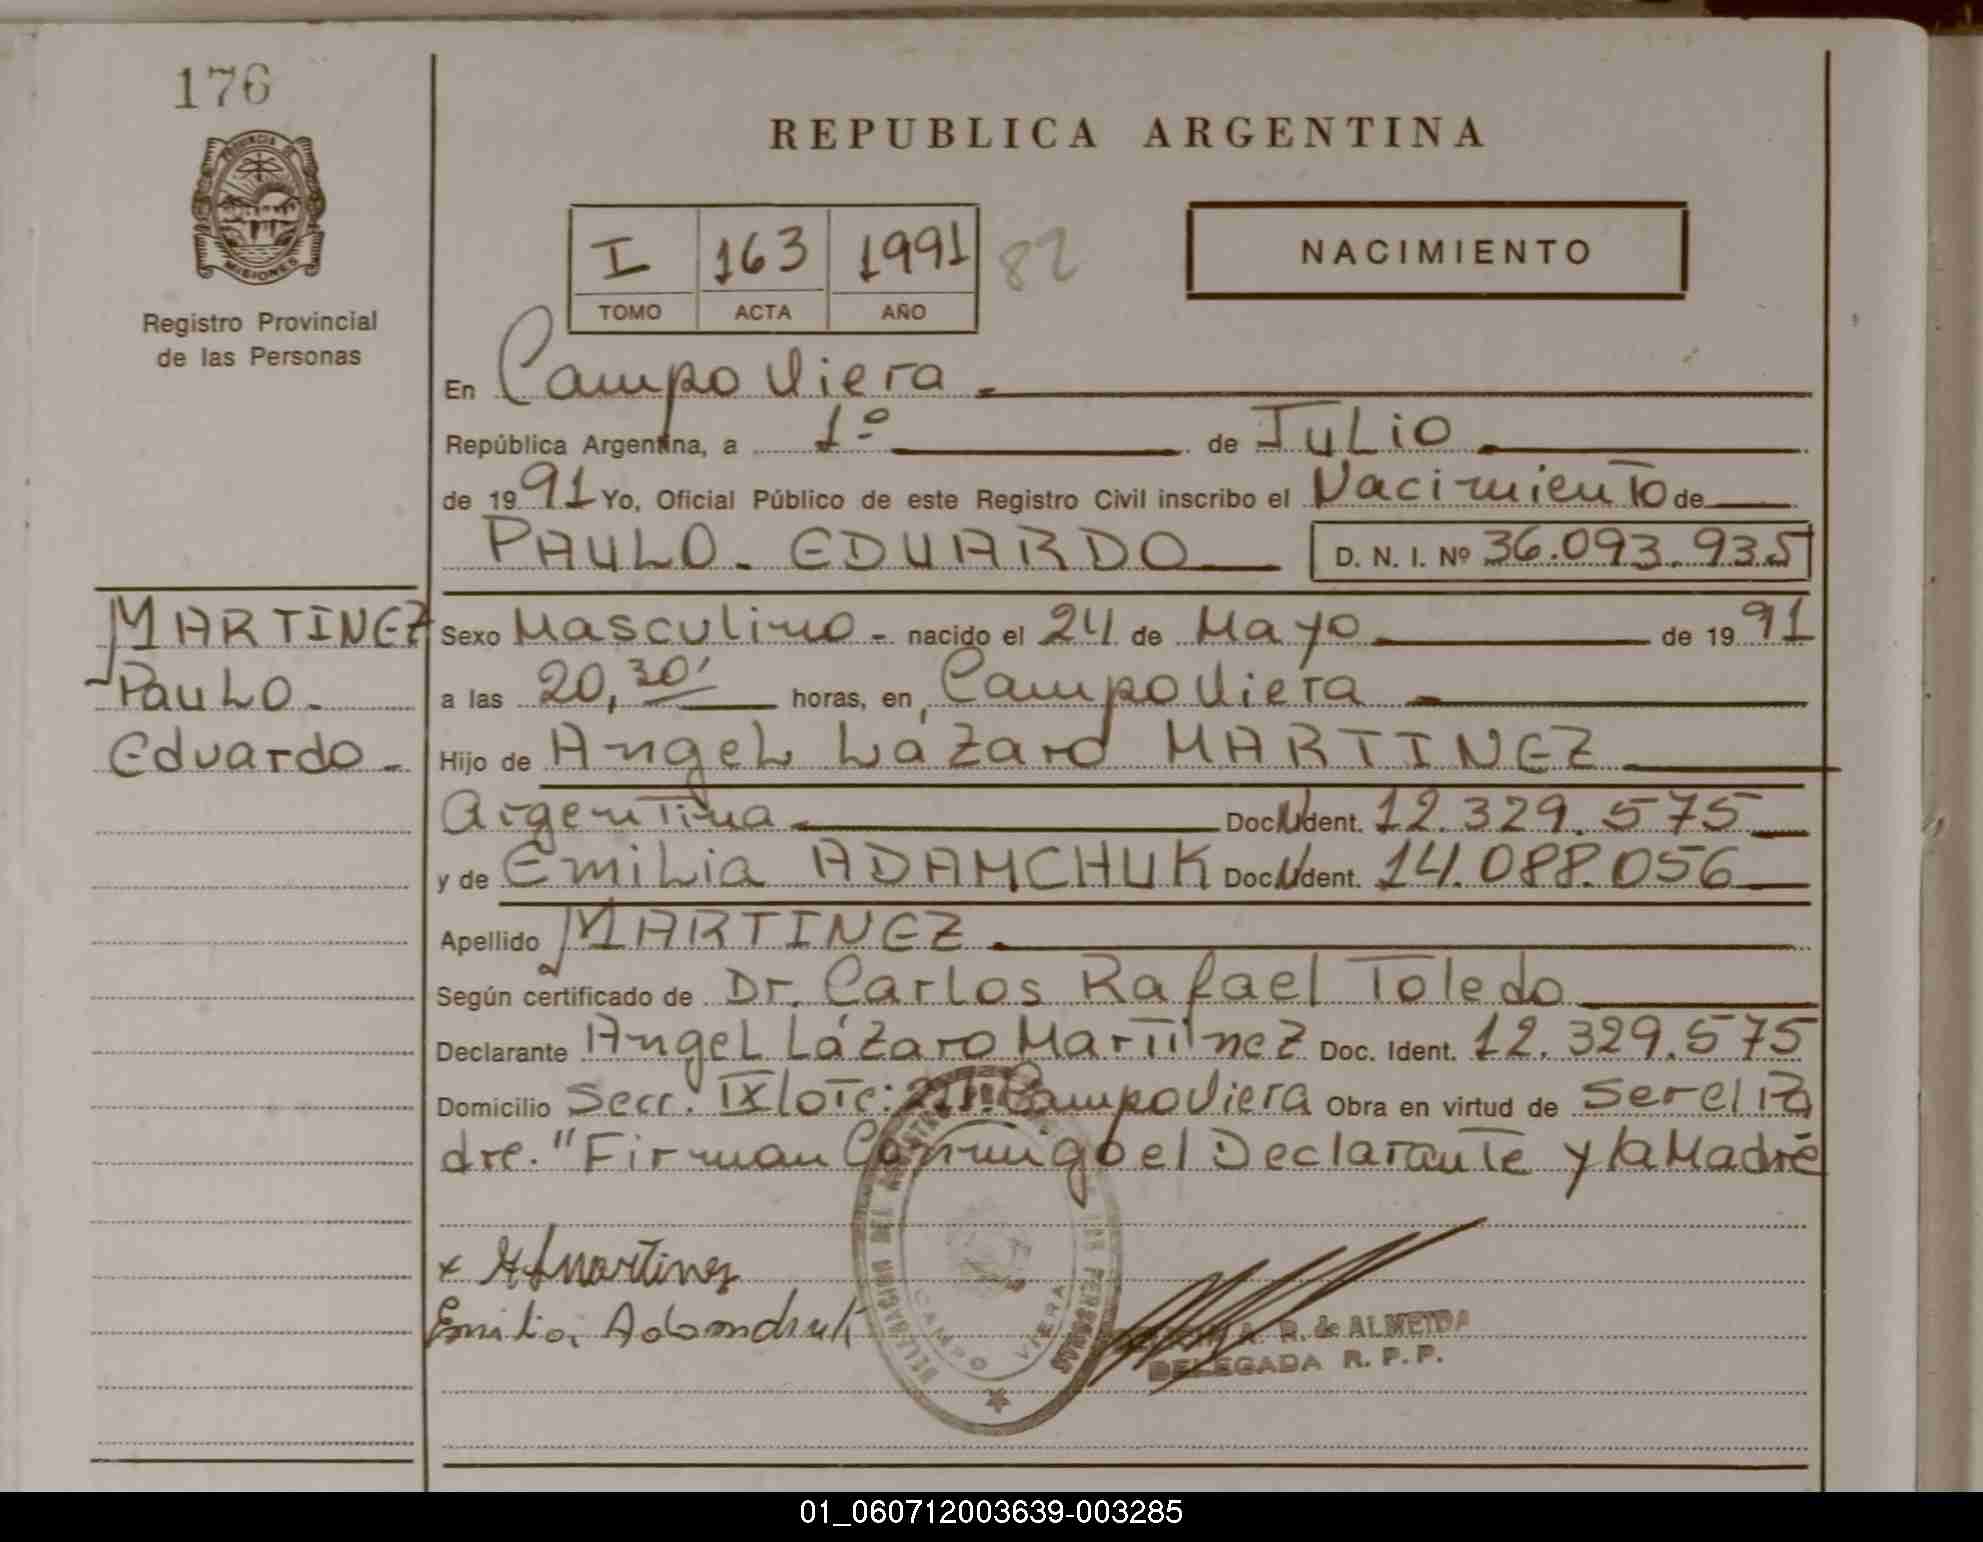 176
PROVINCIA DE
MISIONES
Registro Provincial
de las Personas
REPUBLICA ARGENTINA
I 163 1991 82
TOMO ACTA AÑO
NACIMIENTO
En Campo Viera
República Argentina, a 1º de Julio
de 1991 Yo, Oficial Público de este Registro Civil inscribo el Nacimiento de
PAULO - EDUARDO D. N. I. Nº 36.093.935
MARTINEZ
Paulo -
Eduardo -
Sexo Masculino - nacido el 24 de Mayo de 1991
a las 20,30' horas, en Campo Viera
Hijo de Angel Lázaro MARTINEZ
Argentina Doc. Ident. 12.329.575
y de Emilia ADAMCHUK Doc. Ident. 14.088.056
Apellido MARTINEZ
Según certificado de Dr. Carlos Rafael Toledo
Declarante Angel Lázaro Martinez Doc. Ident. 12.329.575
Domicilio Secc. IX lote: Campo Viera Obra en virtud de ser el Pa
dre. "Firman Conmigo el Declarante y la Madre
x Martinez
Emilia Adamchuk
CAMPO VIERA
R. de ALMEIDA
DELEGADA R. P. P.
01_060712003639-003285